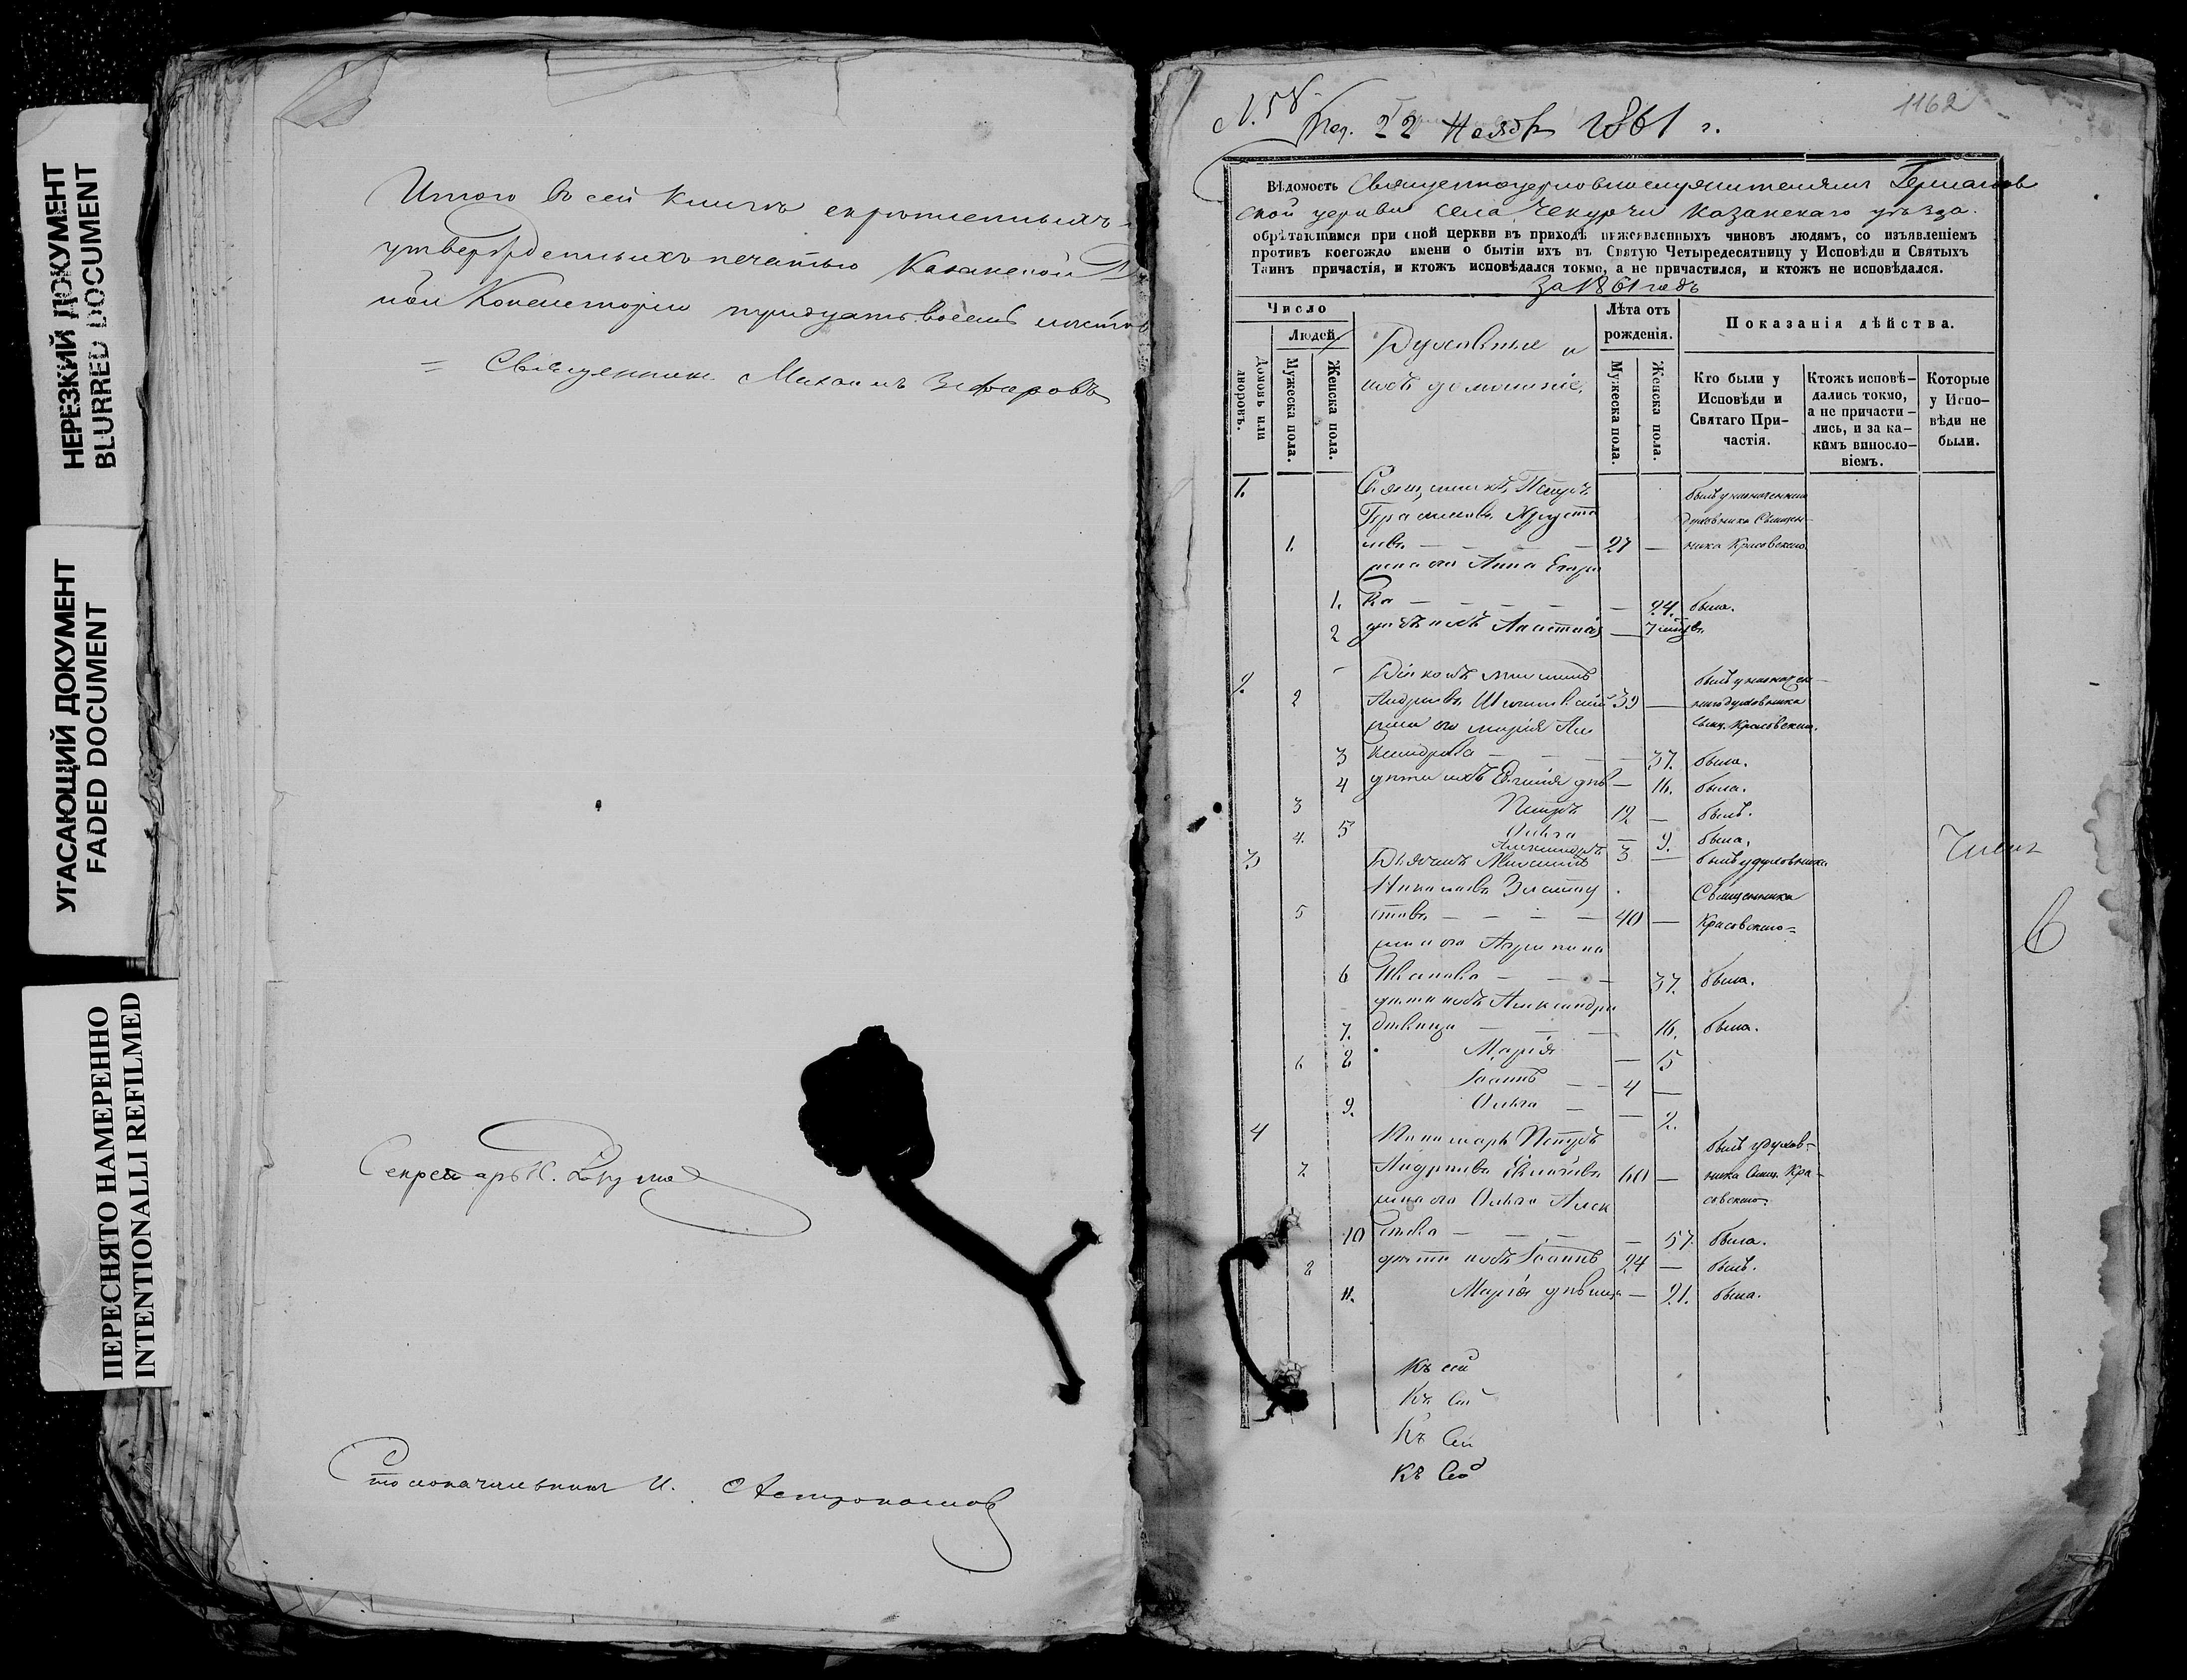 НЕРЕЗКИЙ ДОКУМЕНТ
BLURRED DOCUMENT
УГАСАЮЩИЙ ДОКУМЕНТ
FADED DOCUMENT
ПЕРЕСНЯТО НАМЕРЕННО
INTENTIONALLI REFILMED
Итого въ сей книгѣ скрѣпленныхъ
утвержденныхъ печатью Казанской Д
ной Консисторіи тридцать восемь листовъ
= Священникъ Михаилъ
Секретарь
Столоначальникъ И.
N. 58
22 Ноября 1861 г.
1162
Вѣдомость Священноцерковнослужителямъ Германов
ской церкви села Чекурчи Казанскаго уѣзда.
обрѣтающимся при оной церкви въ приходѣ нижеявленныхъ чиновъ людямъ, со изъявленіемъ
противъ коегождо имени о бытіи ихъ въ Святую Четыредесятницу у Исповѣди и Святыхъ
Таинъ причастія, и ктожъ исповѣдался токмо, а не причастился, и ктожъ не исповѣдался.
за 1861 годъ
Число
Домовъ или дворовъ.
Людей
Мужеска пола.
Женска пола.
Духовные и
ихъ домашніе.
Лѣта отъ рожденія.
Мужеска пола.
Женска пола.
Показанія дѣйства.
Кто были у Исповѣди и Святаго Причастія.
Ктожъ исповѣдались токмо, а не причастились, и за какимъ винословіемъ.
Которые у Исповѣди не были.
1. Священникъ Петръ был у назначеннаго
Герасимовъ духовника Священ-
1. 27 — ника Красовскаго
жена его Анна Егоро
1. ва — — — — — 24. была.
2 дочь ихъ Анастасія —
2. Діаконъ былъ у назначен-
2 Андреевъ 39 — наго духовника
жена его Марія Але Свящ. Красовскаго.
3 ксандрова — — — 37. была.
4 дѣти ихъ дѣв — 16. была.
3 Петръ 12 — былъ.
5 Ольга — 9. была.
4. Александръ 3 —
3 Дьячекъ Михаилъ былъ у духовника
Николаевъ Златоу Священника
5 стовъ — — — — 40 — Красовскаго =
жена его Агрипина
6 Иванова — — — 37. была.
дѣти ихъ Александра
7. дѣвица — — — 16. была.
8 Марія — 5
6 Іоаннъ — — 4 —
9. Ольга — — 2.
4 Пономарь Петръ былъ у духов-
7 Андреевъ 60 — ника Свящ. Кра-
жена его Ольга Алек совскаго
10 сѣева — — — — 57. была.
8 дѣти ихъ Іоаннъ 24 — былъ.
11. Марія дѣвица — 21. была.
Къ сей
Къ сей
Къ сей
Къ сей